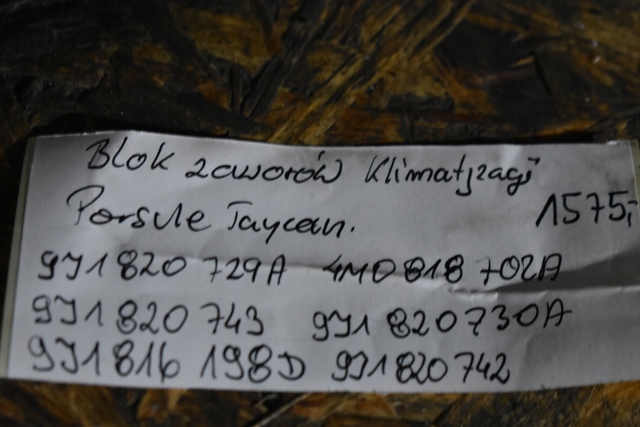 Blok zaworów Klimatyzacji
Porsche Taycan. 1575,-
9J1 820 729A 4M0 818 702A
9J1 820 743 9J1 820 730A
9J1 816 198D 9J1 820 742